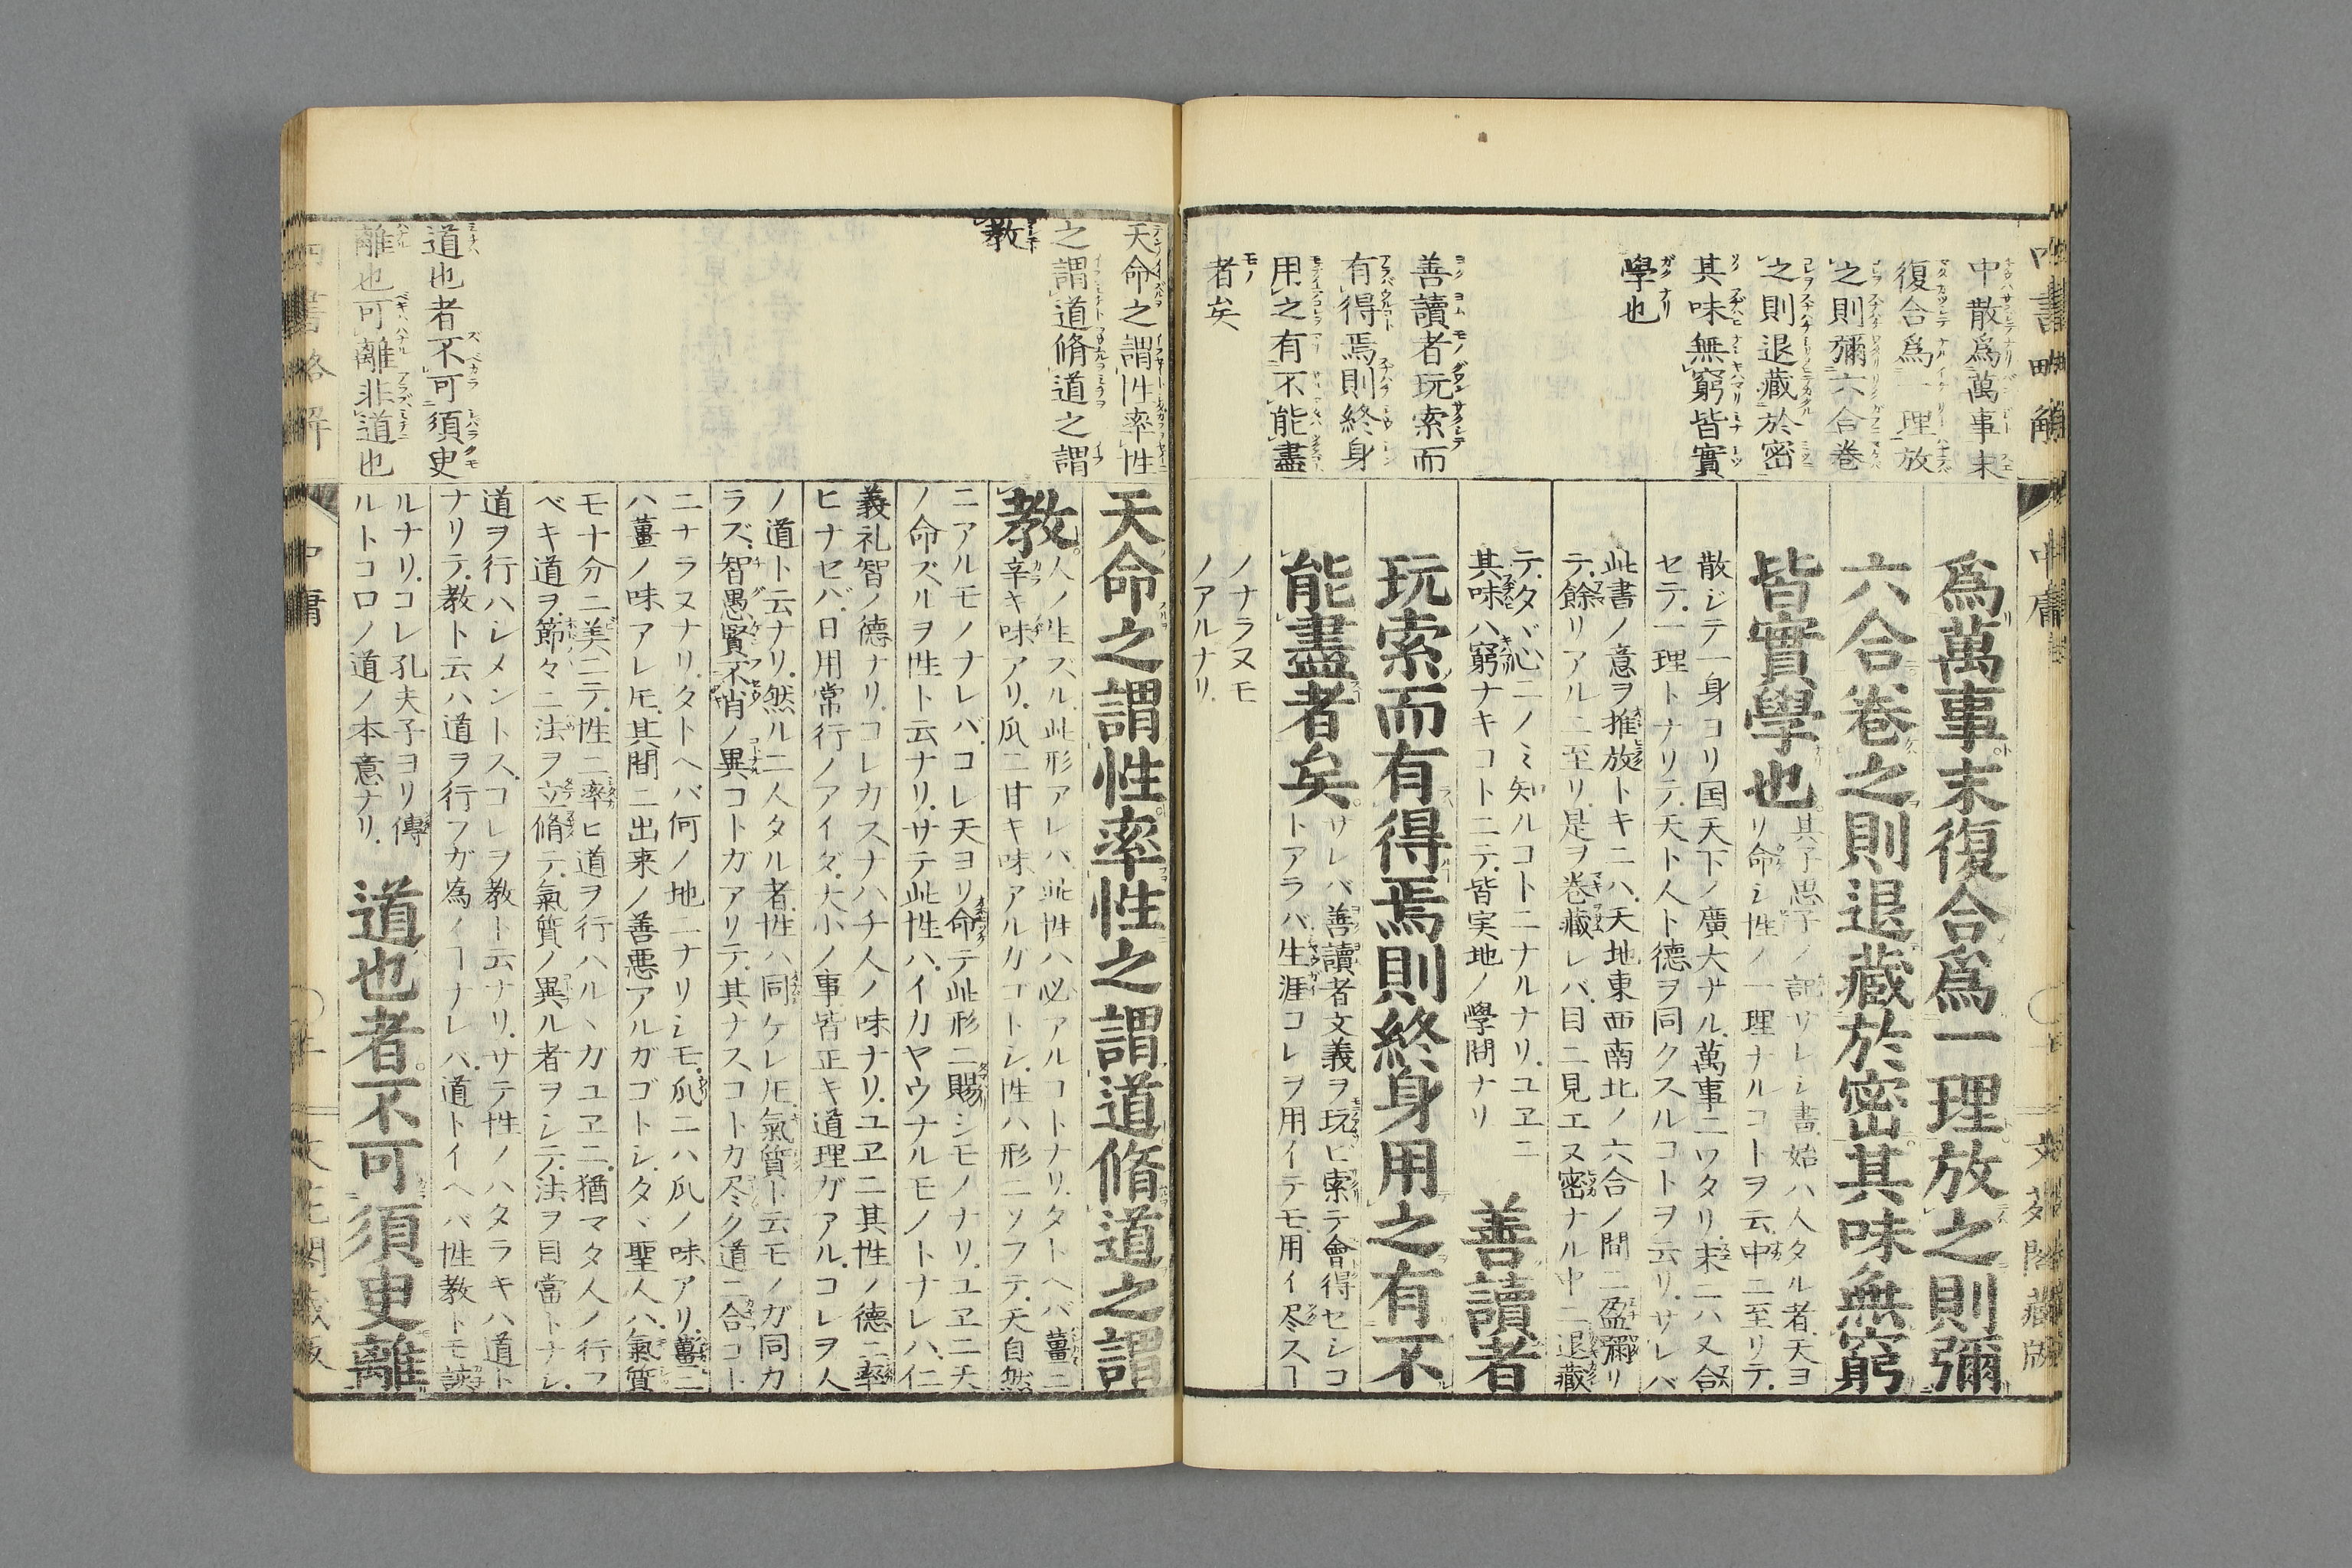 中散爲萬事末
復合爲一理放
之則彌六合卷
之則退藏於密
其味無窮皆實
學也
善讀者玩索而
有得焉則終身
用之有不能盡
者矣
爲萬事末復合爲一理放之則彌
六合卷之則退藏於密其味無窮
皆實學也
其子思子ノ記サレシ書始ハ人タル者天ヨ
リ命シ性ノ一理ナルコトヲ云中ニ至リテ
散ジテ一身ヨリ国天下ノ廣大ナル萬事ニワタリ末ニハ又合
セテ一理トナリテ天ト人ト德ヲ同クスルコトヲ云リサレバ
此書ノ意ヲ推放トキニハ天地東西南北ノ六合ノ間ニ盈彌リ
テ餘リアルニ至リ是ヲ卷藏レバ目ニ見エヌ密ナル中ニ退藏
テタヾ心ニノミ知ルコトニナルナリユヱニ
其味ハ窮ナキコトニテ皆実地ノ學問ナリ
善讀者
玩索而有得焉則終身用之有不
能盡者矣
サレバ善讀者文義ヲ玩ヒ索テ會得セシコ
トアラバ生涯コレヲ用イテモ用イ尽スヿ
ノナラヌモ
ノアルナリ
天命之謂性率性
之謂道脩道之謂
教
道也者不可須臾
離也可離非道也
天命之謂性率性之謂道脩道之謂
教
人ノ生ズル此形アレバ此性ハ必アルコトナリタトヘバ薑ニ
辛キ味アリ瓜ニ甘キ味アルガゴトシ性ハ形ニソフテ天自然
ニアルモノナレバコレ天ヨリ命テ此形ニ賜シモノナリユヱニ天
ノ命ズルヲ性ト云ナリサテ此性ハイカヤウナルモノトナレハ仁
義礼智ノ德ナリコレカスナハチ人ノ味ナリユヱニ其性ノ德ニ率
ヒナセバ日用常行ノアイダ大小ノ事皆正キ道理ガアルコレヲ人
ノ道ト云ナリ然ルニ人タル者性ハ同ケレ𪜈氣質ト云モノガ同カ
ラズ智愚賢不肖ノ異コトガアリテ其ナスコトカ尽ク道ニ合コト
ニナラヌナリタトヘバ何ノ地ニナリシモ瓜ニハ瓜ノ味アリ薑ニ
ハ薑ノ味アレ𪜈其間ニ出来ノ善悪アルガゴトシタヾ聖人ハ氣質
モ十分ニ美ニテ性ニ率ヒ道ヲ行ハルヽガユヱニ猶マタ人ノ行フ
ベキ道ヲ節々ニ法ヲ立脩テ氣質ノ異ル者ヲシテ法ヲ目當トナシ
道ヲ行ハシメントスコレヲ教ト云ナリサテ性ノハタラキハ道ト
ナリテ教ト云ハ道ヲ行フガ為ノヿナレハ道トイヘバ性教トモ該
ルナリコレ孔夫子ヨリ傳
ルトコロノ道ノ本意ナリ
道也者不可須臾離